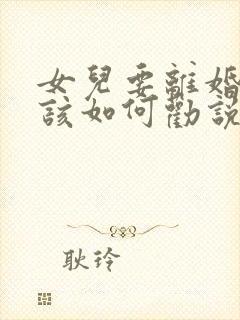 女兒要離婚
該如何勸說
耿玲